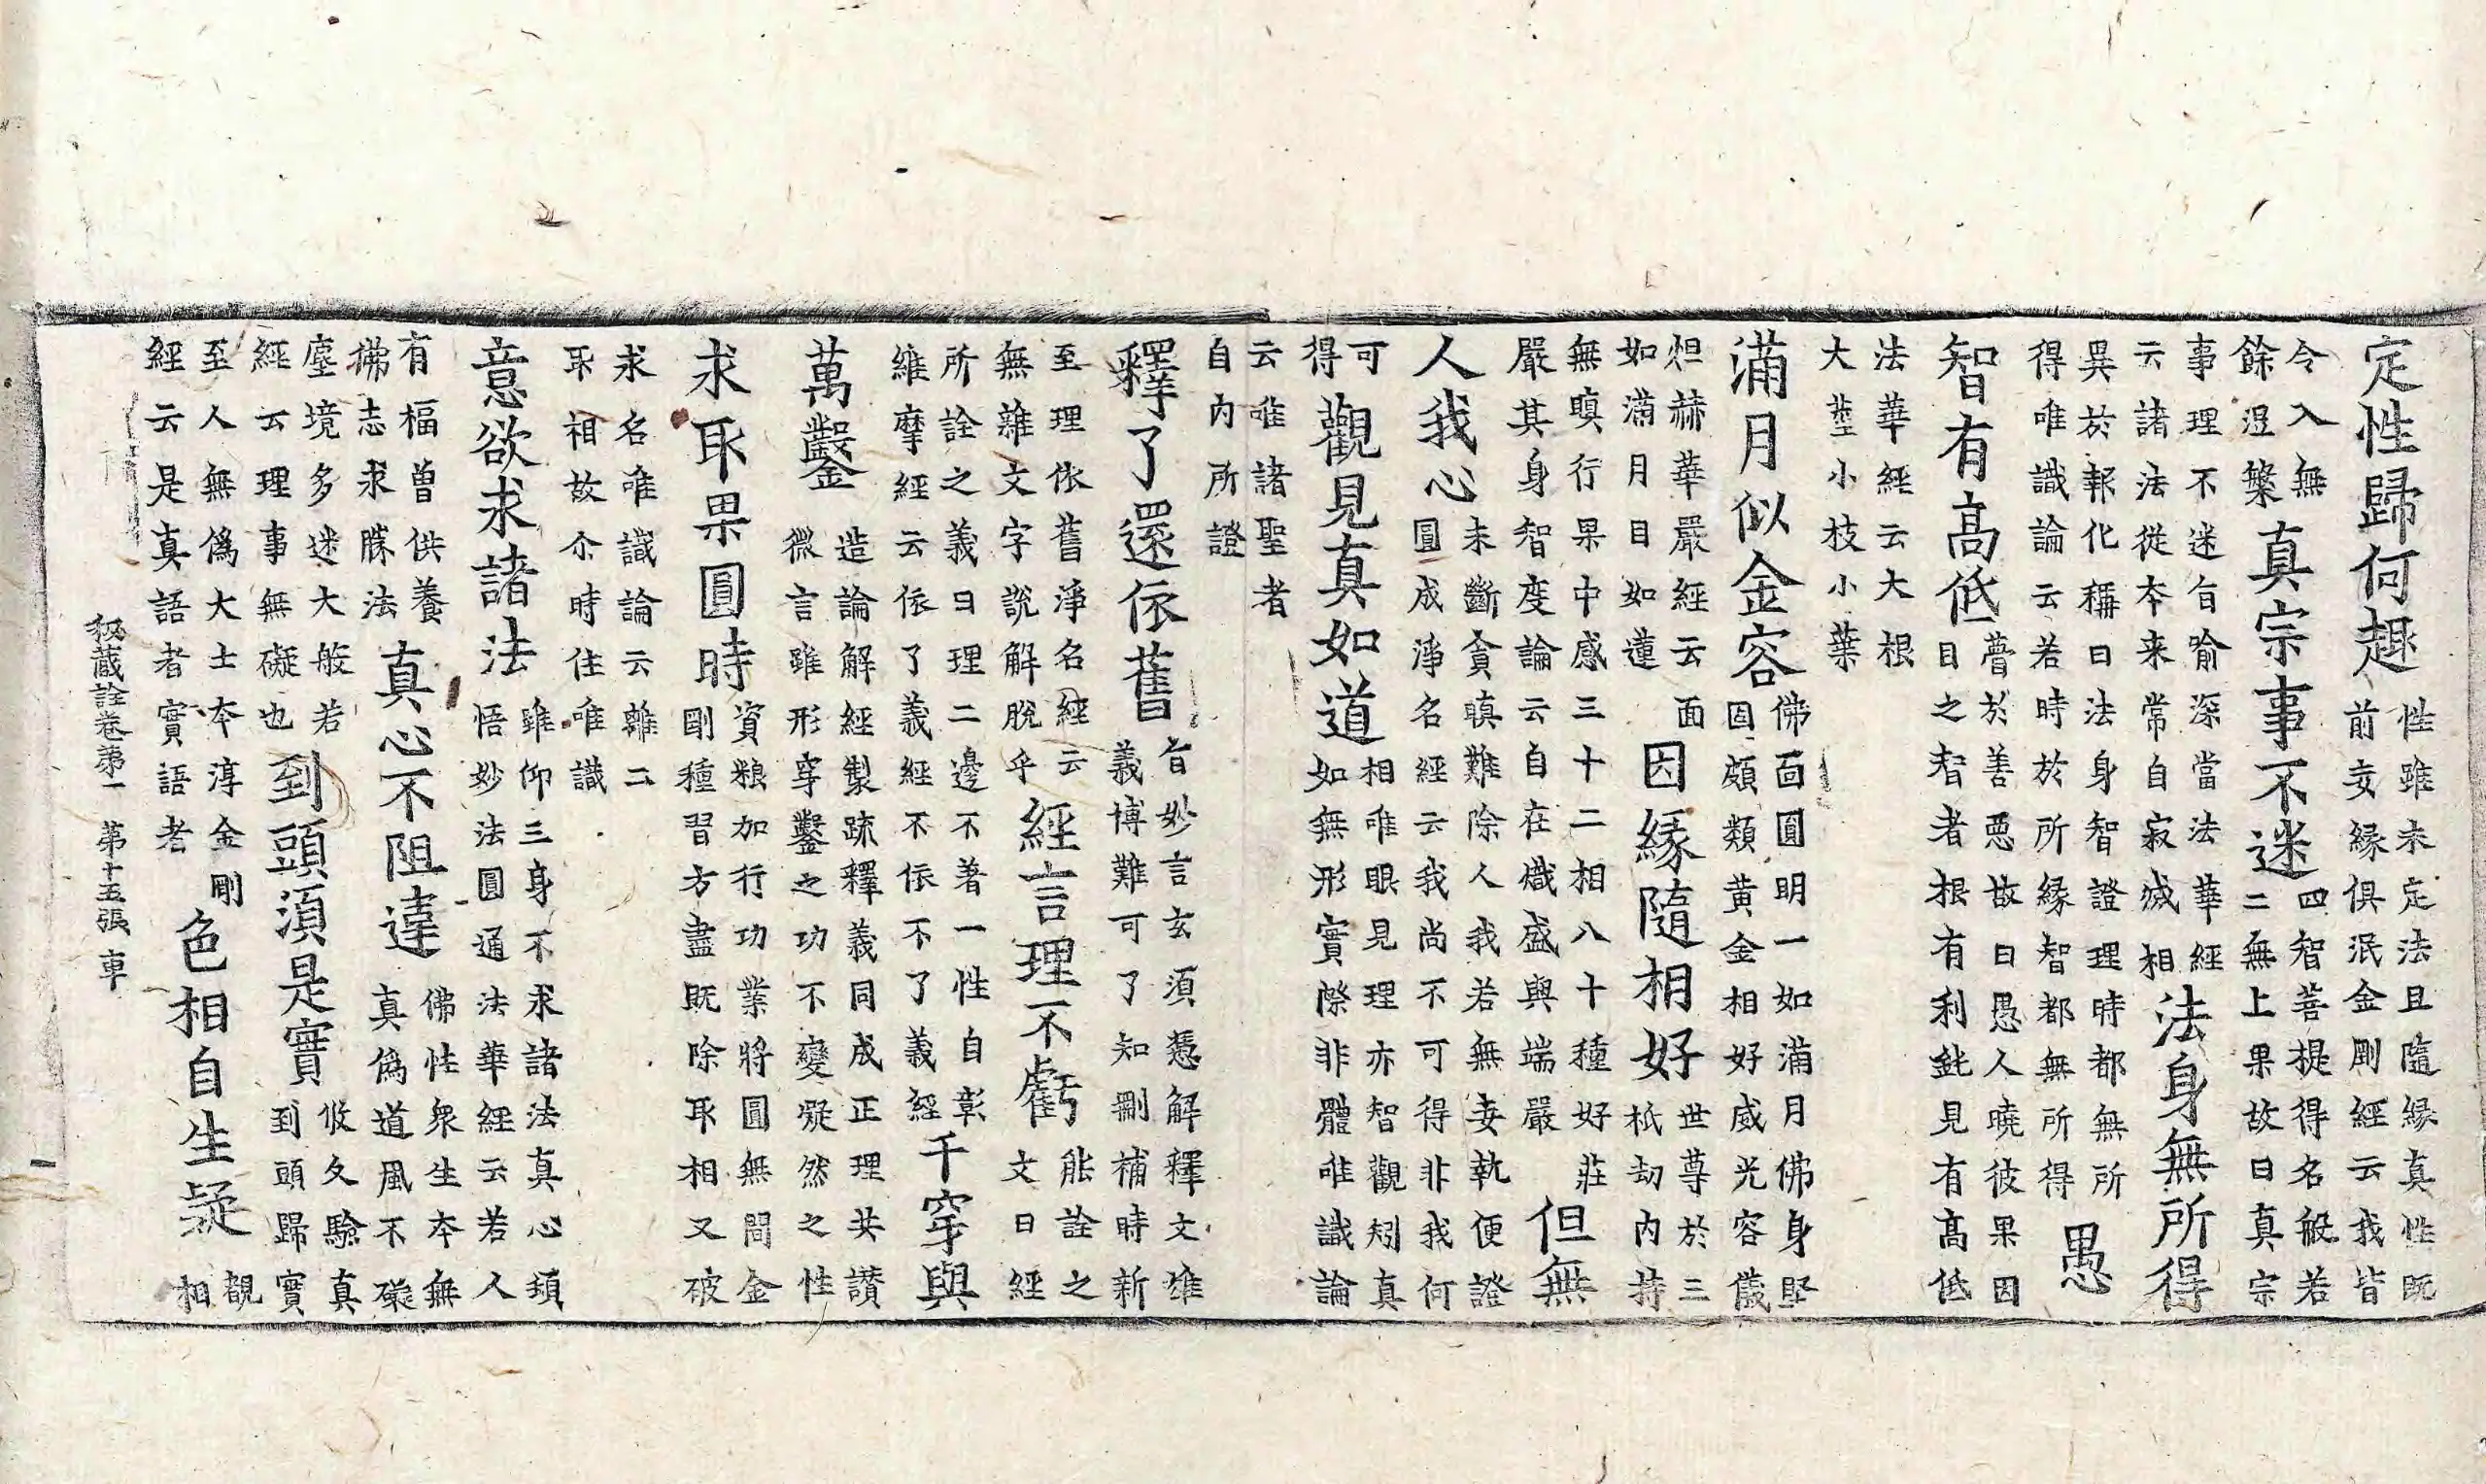 定性歸何趣
性雖未定法且隨緣真性既
前妄緣俱泯金剛經云我皆
令入無
餘涅槃
真宗事不迷
四智菩提得名般若
二無上果故曰真宗
事理不迷旨喻深當法華經
云諸法從本来常自寂滅相
法身無所得
異於報化稱曰法身智證理時都無所
得唯識論云若時於所緣智都無所得
愚
智有高低
瞢於善惡故曰愚人曉彼果因
目之智者根有利鈍見有高低
法華經云大根
大莖小枝小葉
滿月似金容
佛面圓明一如滿月佛身堅
固頗類黃金相好威光容儀
炟赫華嚴經云面
如滿月目如蓮
因緣隨相好
世尊於三
祇劫內持
無瞋行果中感三十二相八十種好莊
嚴其身智度論云自在熾盛與端嚴
但無
人我心
未斷貪瞋難除人我若無妄執便證
圓成淨名經云我尚不可得非我何
可
得
觀見真如道
相唯眼見理亦智觀矧真
如無形實際非體唯識論
云唯諸聖者
自內所證
釋了還依舊
旨妙言玄須憑解釋文雄
義博難可了知刪補時新
至理依舊淨名經云
無離文字說解脫乎
經言理不虧
能詮之
文曰經
所詮之義曰理二邊不著一性自彰
維摩經云依了義經不依不了義經
千穿與
萬鑿
造論解經製疏釋義同成正理共讚
微言雖形穿鑿之功不變凝然之性
求取果圓時
資粮加行功業將圓無間金
剛種習方盡既除取相又破
求名唯識論云離二
取相故尒時住唯識
意欲求諸法
雖仰三身不求諸法真心頊
悟妙法圓通法華經云若人
有福曾供養
佛志求勝法
真心不阻違
佛性衆生本無
真偽道風不礙
塵境多迷大般若
經云理事無礙也
到頭須是實
攸久驗真
到頭歸實
至人無為大士本淳金剛
經云是真語者實語者
色相自生疑
覩
相
秘蔵詮卷第一 第十五張 車